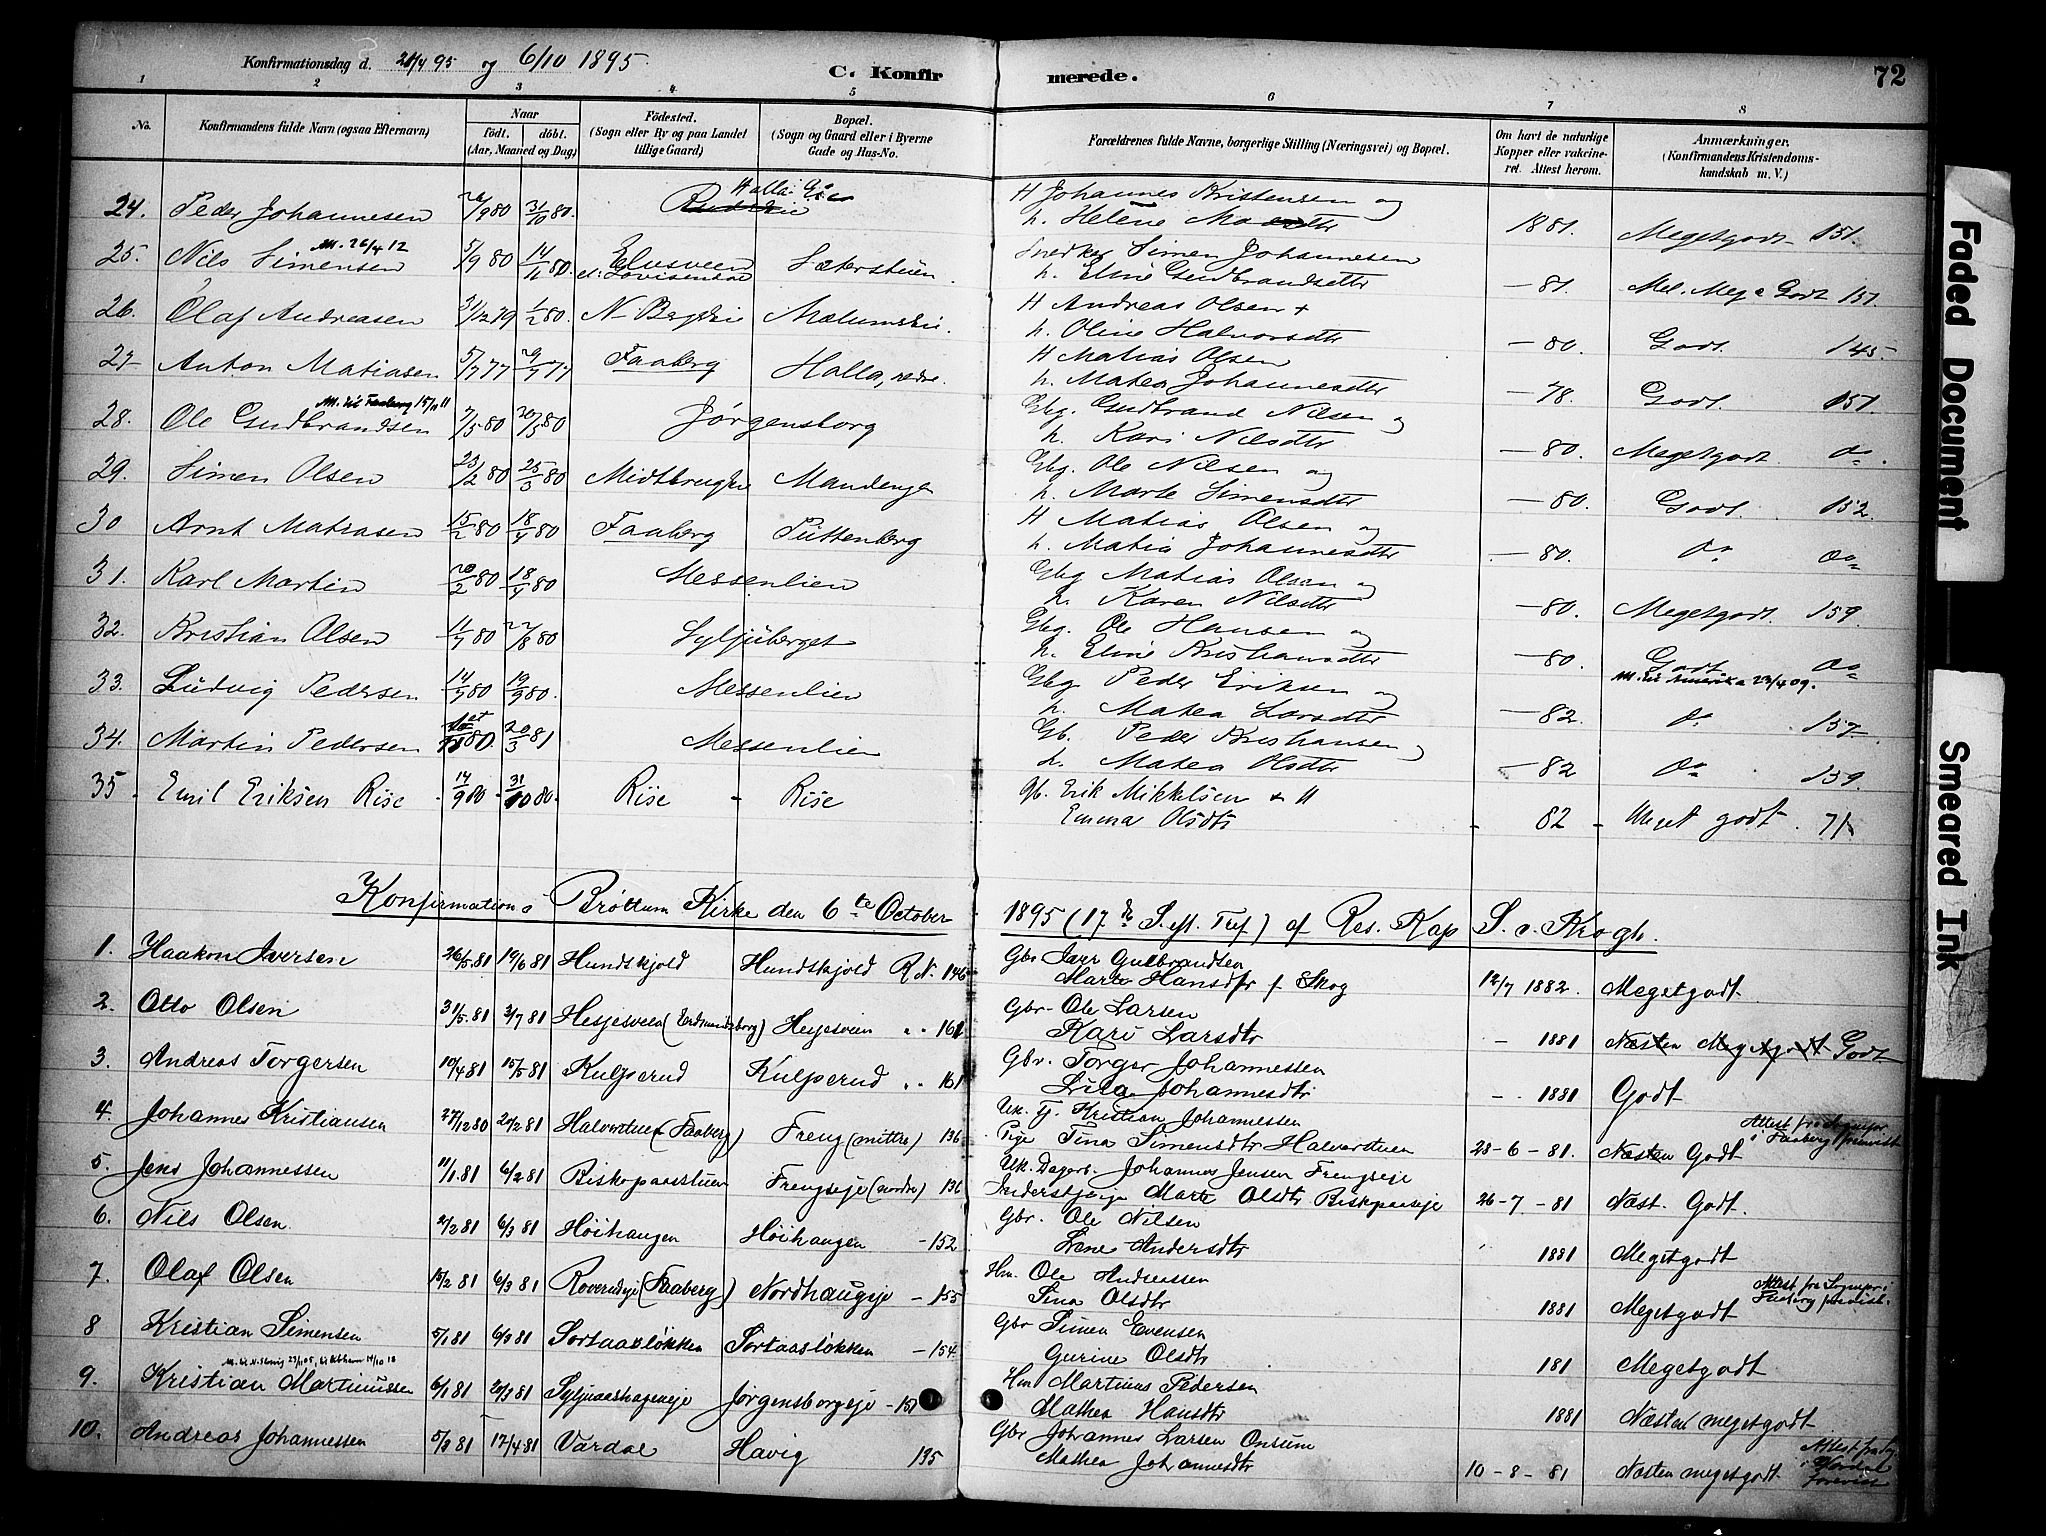 Konfirmationsdag d. 21/4 95 og 6/10 1895
C. Konfirmerede.
72
1 2 3 4 5 6 7 8
No.
Konfirmandens fulde Navn (ogsaa Efternavn)
Naar
født. døbt.
(Aar, Maaned og Dag)
Fødested.
(Sogn eller By og paa Landet tillige Gaard)
Bopæl.
(Sogn og Gaard eller i Byerne Gade og Hus-No.
Forældrenes fulde Navne, borgerlige Stilling (Næringsvei) og Bopæl.
Om havt de naturlige Kopper eller vakcineret. Attest herom.
Anmærkninger.
(Konfirmandens Kristendomskundskab m. V.)
24. Peder Johannesen /9 80 31/10 80. H Johannes Kristensen og
h. Helene 1881. Megetgodt 151.
M. 26/4 12
25. Nils Simensen 5/9 80 14/11 80. Sæterstuen Snedker Simen Johannesen
h. Eline Gudbrandsdtr — 81. Mel. Meg. Godt 151.
26. Olaf Andreasen 31/12 79 1/2 80. Mælumseie. H Andreas Olsen +
h. Oline Halvorsdtr — 80. Godt. 145.
27 Anton Matiasen 5/7 77 29/7 77 Faaberg Holla, nedre. H Matias Olsen
h. Matea Johannesdtr — 78. Godt. 151.
M. til Faaberg 15/10 11
28. Ole Gudbrandsen 7/5 80 20/5 80 Jörgensborg Gbg. Gudbrand Nilsen og
h. Kari Nilsdtr — 80. Megetgodt do.
29. Simen Olsen 23/2 80 25/3 80 Mandenga Gbg. Ole Nilsen og
h. Marte Simensdtr — 80. Godt. 152.
30 Arnt Matiasen 15/2 80 18/4 80 Faaberg Püttenberg H Matias Olsen og
h. Matia Johannesdtr — 80. do do
31. Karl Martin 20/2 80 18/4 80 Messenlien Gbg Matias Olsen og
h. Karen Nilsdtr — 80. Megetgodt. 159.
32. Kristian Olsen 11/7 80 22/8 80 Syljuberget Gbg. Ole Hansen og
h. Eline Kristiansdtr — 80. Godt do
M. til Amerika 23/4 09.
33. Ludvig Pedersen 14/9 80 19/9 80. Messenlien Gbg Peder Eriksen og
h. Matea Larsdtr — 82. do 157.
34. Martin Pedersen 80 20/3 81 Messenlien Gb. Peder Kristiansen og
h. Matea Olsdtr — 82 do 159.
35. Emil Eriksen Rise 14/9 80 31/10 80. Rise - Rise gb. Erik Mikkelsen + H
Emma Olsdtr - 82 - Meget godt. 71.
Konfirmation i Bröttum Kirke den 6te October 1895 (17de S. eft. Tref) af Res. Kap S. v. Krogh.
1. Haakon Iversen 26/5.81 19/6 81 Hundskjold Hundskjold R.N. 146 Gbr Iver Gulbrandsen
Marte Hansdtr f. Skog 12/7 1882. Megetgodt
2. Otto Olsen 31/5.81 3/7 81 Hesjesveen (Erdmundsborg) Hesjesveen „ . 161 Gbr. Ole Larsen
Kari Larsdtr - 1881 Næsten Megetgodt Godt
3. Andreas Torgersen 10/4 81 15/5 81 Kulpsrud Kulpsrud „ . 161 Gbr. Torger Johannessen
Lisa Johannesdtr - . 1881 Godt
4. Johannes Kristiansen 27/12 80 20/2 81 Halvorstuen (Faaberg) Freng (mittre) 136 Uk. Tj. Kristian Johannessen
Pige Tina Simensdtr Halvorstuen 28-6-81. Næsten Godt
5. Jens Johannessen 11/1.81 6/2 81 Biskopaasstuen Frengseje (nordre) 136 Uk. Dagarb. Johannes Jensen Frengseje
Inderstpige Marte Olsdtr Biskopaaseje 26-7-81 Næst. Godt.
6. Nils Olsen 2/2 81 6/3 81 Höihaugen Höihaugen - 152 Gbr. Ole Nilsen
Lene Andersdtr 1881 Megetgodt
7. Olaf Olsen 15/2 81 6/3 81 Roverudeje (Faaberg) Nordhaugseje - 155 Hm. Ole Andreassen
Sina Olsdtr 1881 Megetgodt
8 Kristian Simensen 5/1 81 6/3 81 Sortaaslökken Sortaaslökken - 154 Gbr Simen Evensen
Gurine Olsdtr 181 Megetgodt
9. Kristian Martinussen 6/1 81 20/3 81 Jörgensborgseje - 151 Hm Martinus Pedersen
Mathea Hansdtr 1881 Næsten megetgodt
10. Andreas Johannessen 5/3 81 17/4 81 Vardal Havig 135 Gbr Johannes Larsen Onsum
Mathea Johannesdtr 10-8-81 Næsten megetgodt
Faded Document
Smeared Ink